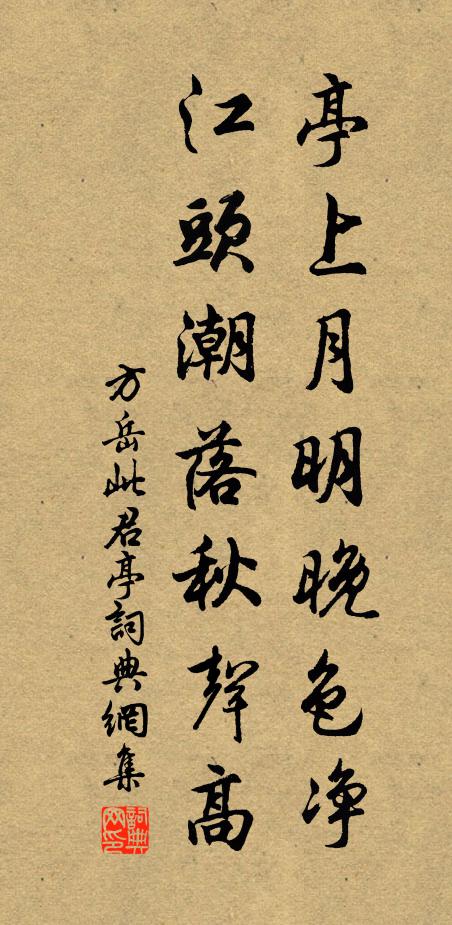 亭上月明晚色净
江頭潮落秋聲高
方岳此君亭詞典網集
詞典网印